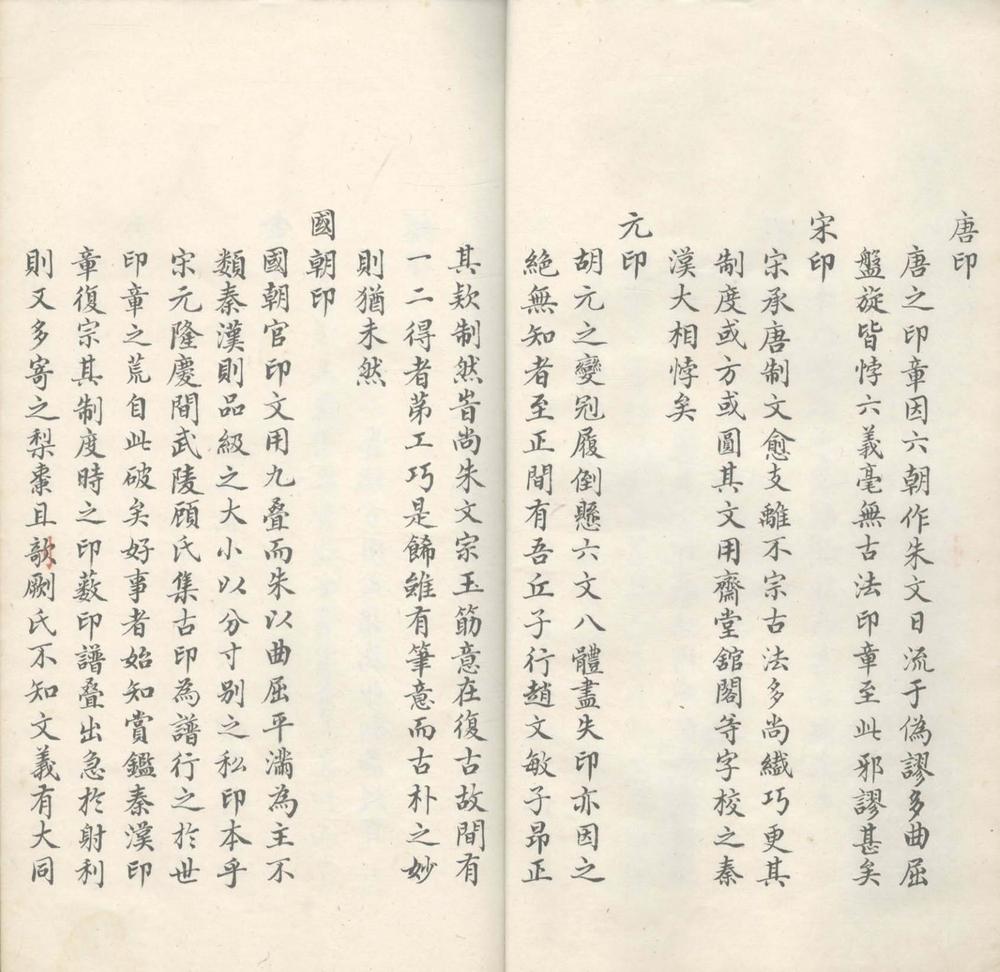 唐印
唐之印章因六朝作朱文日流于偽謬多曲屈
盤旋皆悖六義毫無古法印章至此邪謬甚矣
宋印
宋承唐制文愈支離不宗古法多尚纖巧更其
制度或方或圓其文用齋堂舘閣等字校之秦
漢大相悖矣
元印
胡元之變冠履倒懸六文八體盡失印亦因之
絶無知者至正間有吾丘子行趙文敏子昂正
其欵制然皆尚朱文宗玉筯意在復古故間有
一二得者第工巧是餙雖有筆意而古朴之妙
則猶未然
國朝印
國朝官印文用九叠而朱以曲屈平滿為主不
類秦漢則品級之大小以分寸别之私印本乎
宋元隆慶間武陵顧氏集古印為譜行之於世
印章之荒自此破矣好事者始知賞鑑秦漢印
章復宗其制度時之印藪印譜叠出急於射利
則又多寄之梨棗且剞劂氏不知文義有大同